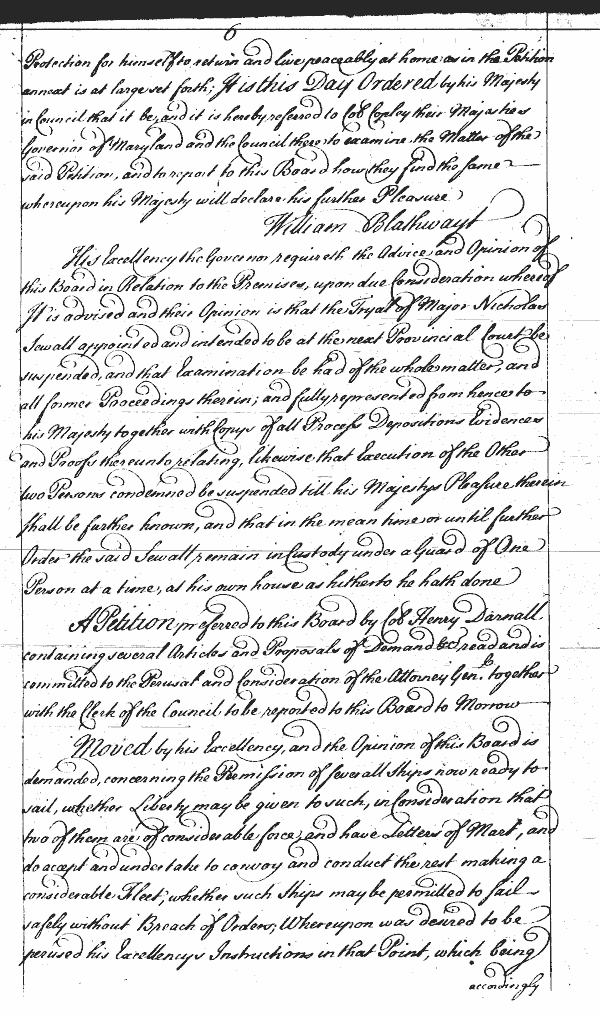 6
Protection for himself to return and live peaceably at home as in the Petition
annext is at large set forth; It is this Day Ordered by his Majesty
in Council that it be, and it is hereby referred to Coll Copley their Majesties
Governor of Maryland and the Council there to examine the Matter of the
said Petition, and to report to this Board how they find the same
whereupon his Majesty will declare his further Pleasure
William Blathwayt
His Excellency the Governor requireth the Advice and Opinion of
this Board in Relation to the Premises, upon due Consideration whereof
It is advised and their Opinion is that the Tryal of Major Nicholas
Sewall appointed and intended to be at the next Provincial Court be
suspended, and that Examination be had of the whole matter, and
all former Proceedings therein; and fully represented from hence to
his Majesty together with Copys of all Process Depositions Evidences
and Proofs thereunto relating, likewise that Execution of the Other
two Persons condemned be suspended till his Majestys Pleasure therein
shall be further known, and that in the mean time or until further
Order the said Sewall remain in Custody under a Guard of One
Person at a time, at his own house as hitherto he hath done
A Petition preferred to this Board by Coll Henry Darnall
containing several Articles and Proposals of Demand &c, read and is
committed to the Perusal and Consideration of the Attorney Genll together
with the Clerk of the Council to be reported to this Board to Morrow
Moved by his Excellency, and the Opinion of this Board is
demanded, concerning the Permission of severall Ships now ready to
sail, whether Liberty may be given to such, in Consideration that
two of them are of considerable force, and have Letters of Mart, and
do accept and undertake to convoy and conduct the rest making a
considerable Fleet; whether such Ships may be permitted to sail
safely without Breach of Orders; Whereupon was desired to be
perused his Excellencys Instructions in that Point, which being
accordingly